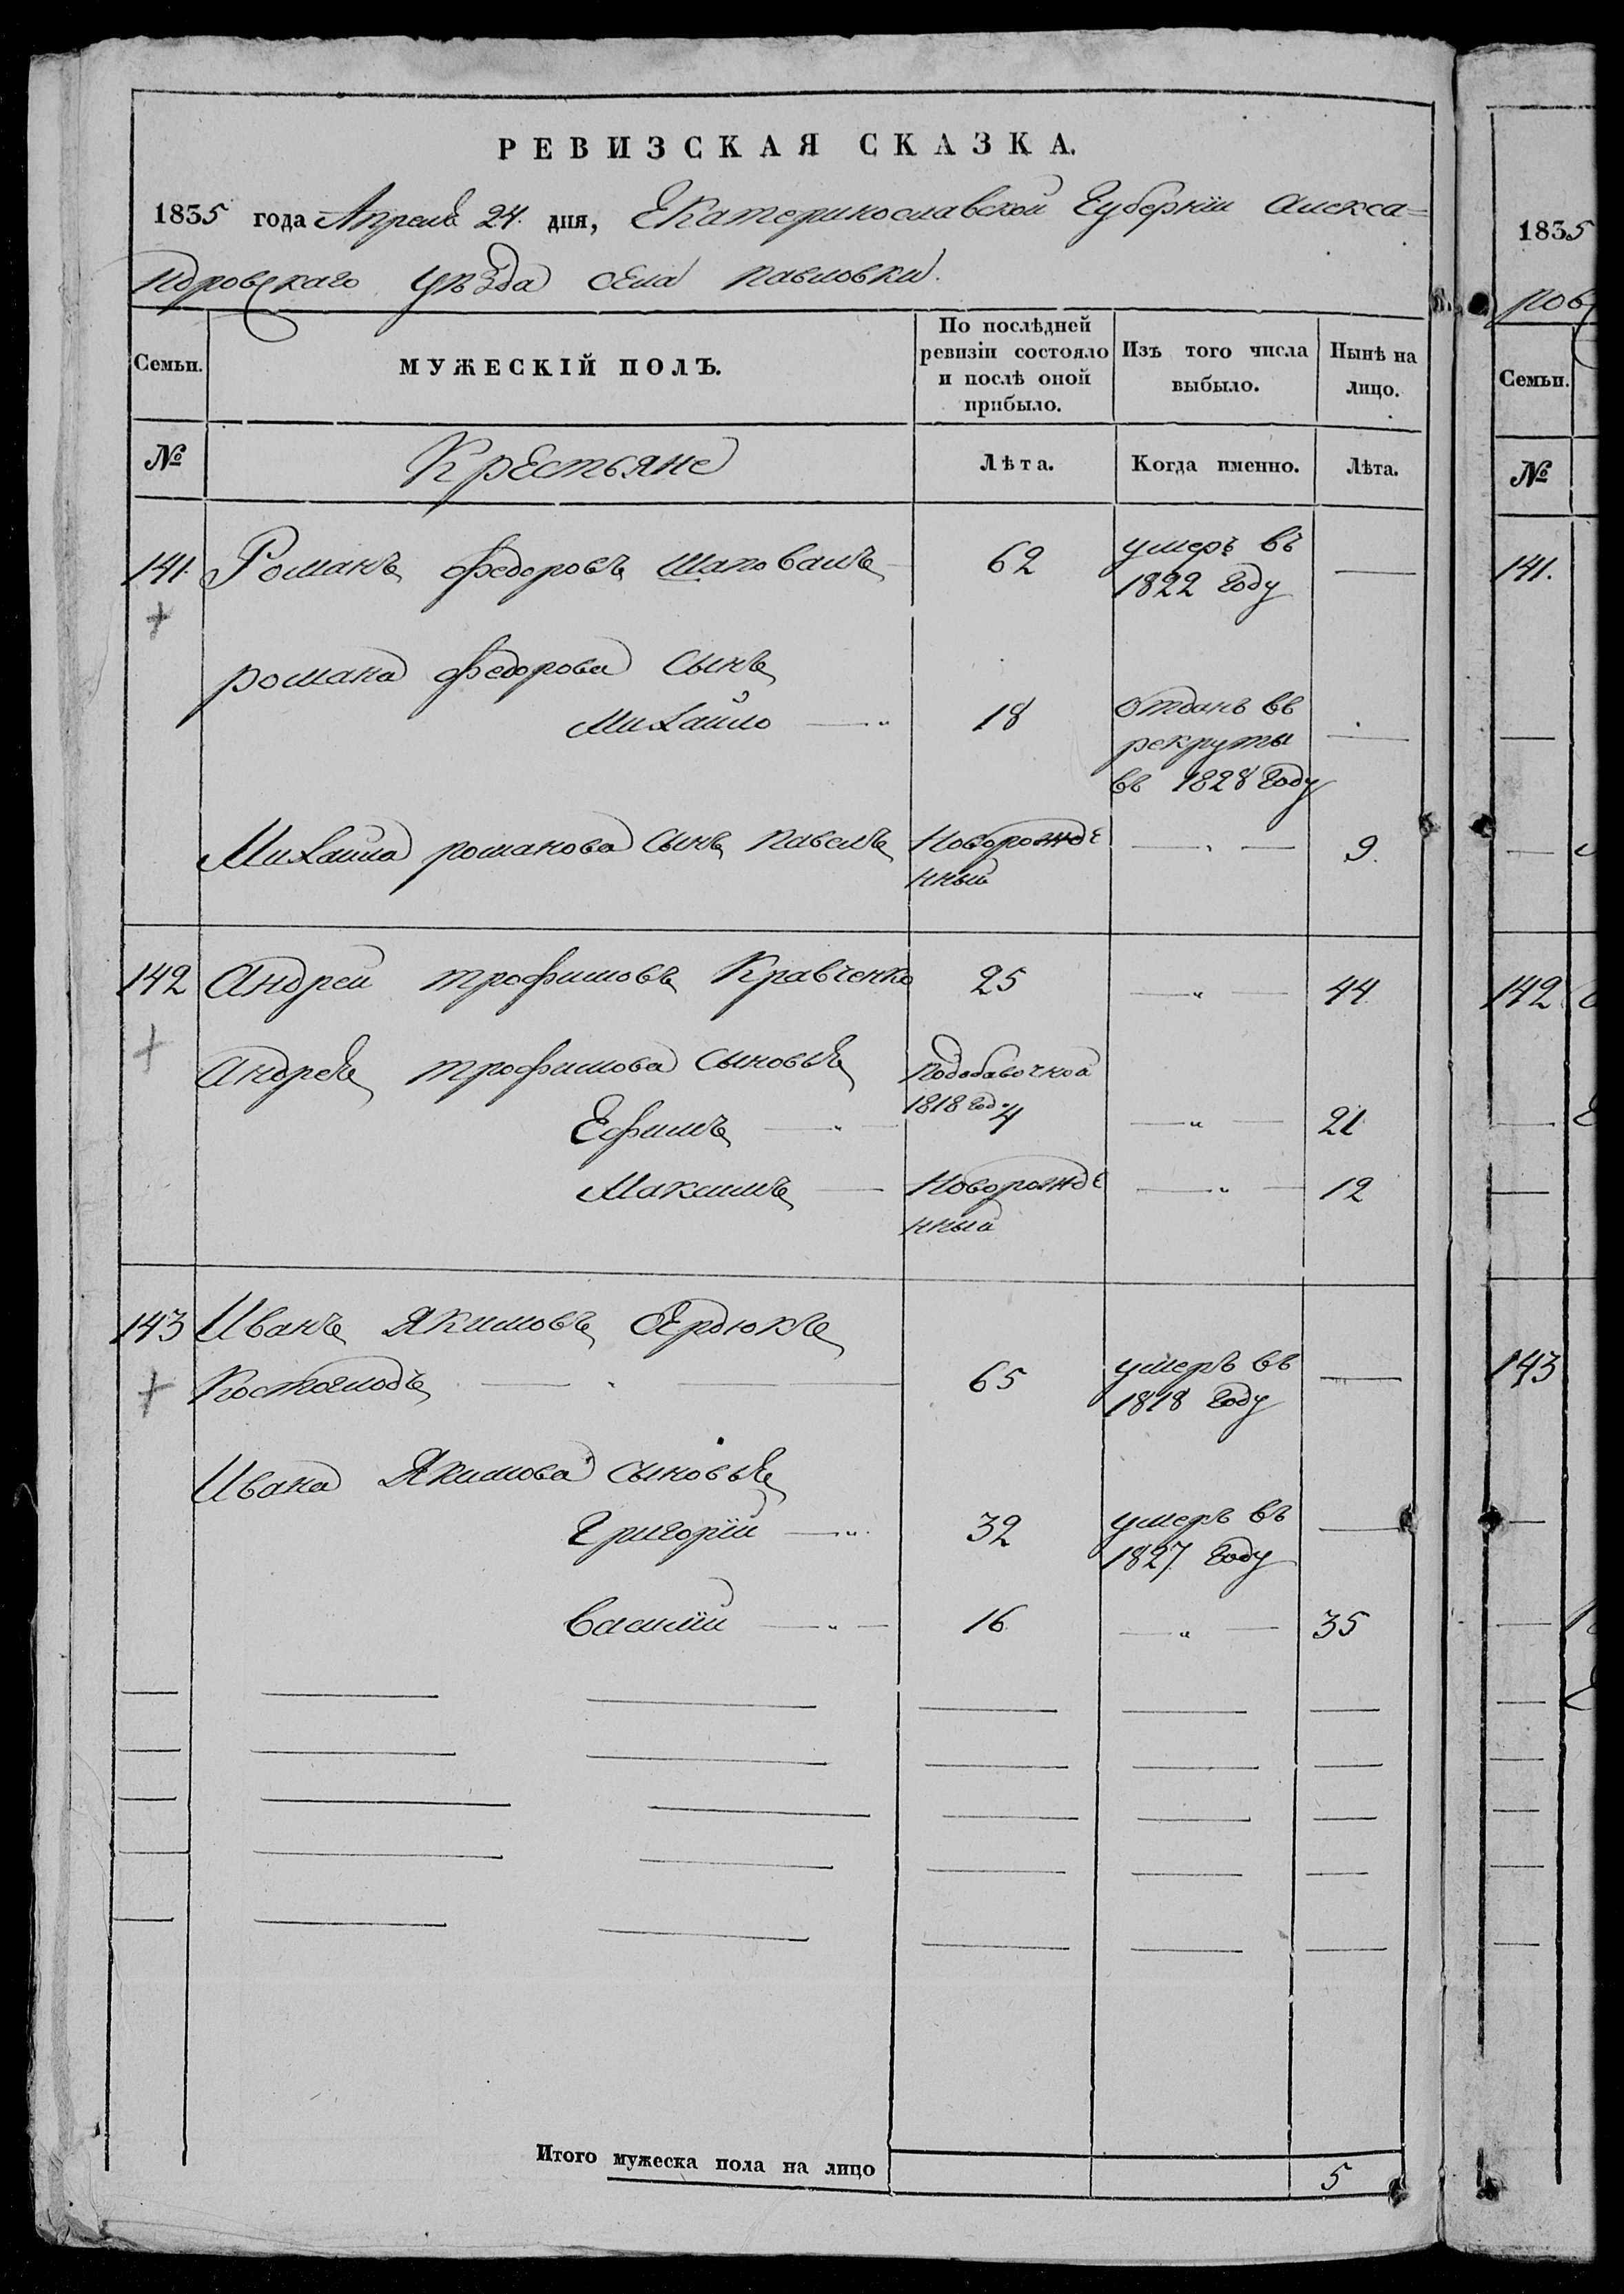 РЕВИЗСКАЯ СКАЗКА.
1835 года Апреля 24. дня, Екатеринославской Губернiи Алекса=
ндровскаго уѣзда села павловки.
Семьи.
МУЖЕСКІЙ ПОЛЪ.
По послѣдней ревизіи состояло и послѣ оной прибыло.
Изъ того числа выбыло.
Нынѣ на лицо.
№
Крестьяне
Лѣта.
Когда именно.
Лѣта.
141. Романъ федоровъ шаповалъ 62 умеръ въ —
1822 году
романа федорова сынъ
Михайло — 18 отданъ въ —
рекруты
въ 1828 году
Михайла романова сынъ павелъ Новорожде — 9.
нный
142 Андрей трофимовъ Кравченко 25 — " — 44
Андрея трофимова сыновья подобавочной
1818 год.
Ефимъ — " — 4 — " — 21
Максимъ — Новорожде — " — 12
нный
143 Иванъ Якимовъ Сердюкъ
Костоглодъ — 65 умеръ въ —
1818 году
Ивана Якимова сыновья
Григорiй — " 32 умеръ въ —
1827 году
Василiй — " — 16 — " — 35
Итого мужеска пола на лицо 5
1835
ров
Семьи.
№
141.
142
143